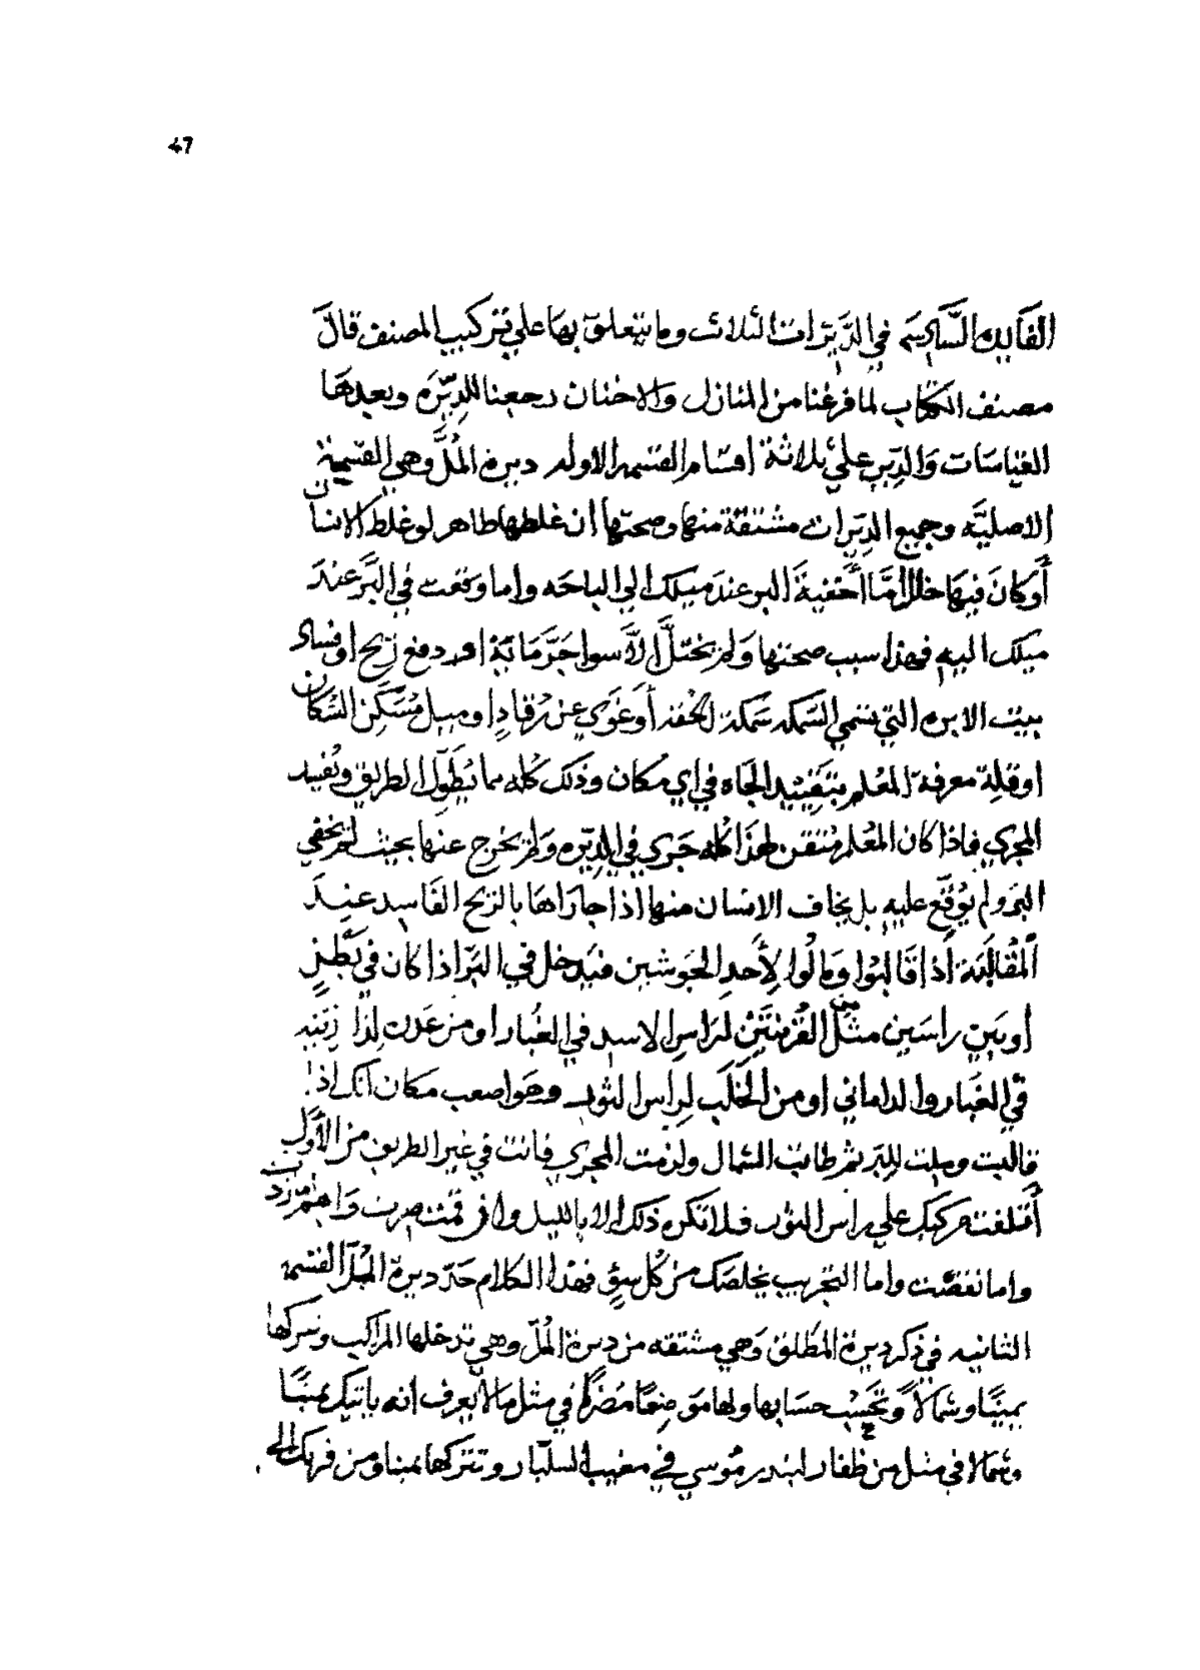 47
الفايده السادسه في الديرات الثلاث وما يتعلق بها على تركيب المصنف قال
مصنف الكتاب لما فرغنا من المنازل والاخنان رجعنا للديره وبعدها
القياسات والدير على ثلاثة اقسام القسم الاوله ديرة المل وهي القسمة
الاصليه وجميع الديرات مشتقة منها وصحتها ان غلطها ظاهر لو غلط الانسان
أو كان فيها خلل امّا أخفية البر عند ميلك الى الباحه واما وقعت في البر عند
ميلك اليه فهذا سبب صحتها ولم يختل إلا سوا جر مائة او دفع ريح او فساد
بيت الابره التي تسمى السمكه سمكة الحقه أو غوي عن رقاد او ميل مسكن السكان
او قلة معرفة المعلم بتقييد الجاه في اي مكان وذلك كله مما يطول الطريق ويفسد
المجري فاذا كان المعلم متقن لهذا كله جري في الديره ولم يخرج عنها بحيث لم يخفي
البر ولم يوقع عليه بل يخاف الانسان منها اذا جاراها بالريح الفاسد عند
المقالبة اذا قالبوا ومالوا لأحد الجوشين فيدخل في البر اذا كان في بطن
أو بين راسين مثل من القرنتين لراس الاسد في الغبار او من عدن لذا زينه
في الغبار والداماني او من الخلب لراس الثور وهو اصعب مكان انك اذا
قالبت وملت للبر ثم طابت الشمال ولزمت المجري فانت في غير الطريق من الأول
أتلفت مركبك على راس الثور فلا تكره ذلك الا بالليل وان قمت صرت
واما نقصت واما التجريب يخلصك من كل سيئ فهذا الكلام حد ديرة المل القسمة
الثانيه في ذكر ديرة المطلق وهي مشتقه من ديرة المل وهي تدخلها المراكب وتتركها
يمينًا وشمالاً وتحسب حسابها ولها موضعًا مضركم في مثل مالا يعرف انه ياتيك يمينًا
وشمالا في مثل من ظفار لبندر موسى في مغيب السلبار وتتركها يمينا ومن فرتك الى